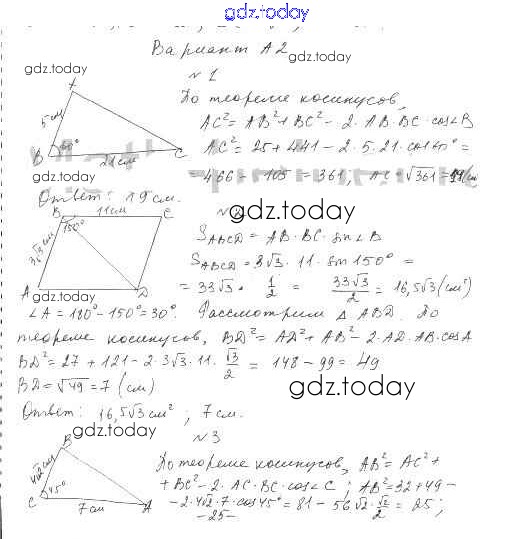 gdz.today
Вариант А2
gdz.today
gdz.today
№1
По теореме косинусов,
AC² = AB² + BC² - 2·AB·BC·cos∠B
AC² = 25 + 441 - 2·5·21·cos60° =
= 466 - 105 = 361, AC = √361 = 19(см
A
5 см
B
60°
21 см
C
gdz.today
Ответ: 19 см.
№2
gdz.today
B 11 см C
150°
3√3 см
A D
S_ABCD = AB·BC·sin∠B
S_ABCD = 3√3 · 11 · sin 150° =
= 33√3 · 1/2 = 33√3/2 = 16,5√3 (см²)
∠A = 180° - 150° = 30°. Рассмотрим △ABD. По
теореме косинусов, BD² = AD² + AB² - 2·AD·AB·cosA
BD² = 27 + 121 - 2·3√3·11·√3/2 = 148 - 99 = 49
BD = √49 = 7 (см)
gdz.today
Ответ: 16,5√3 см² ; 7 см.
gdz.today
№3
B
4√2 см
C 45°
7 см A
По теореме косинусов, AB² = AC² +
+ BC² - 2·AC·BC·cos∠C ; AB² = 32 + 49 -
- 2·4√2·7·cos45° = 81 - 56√2·√2/2 = 25;
-25-
gdz.today